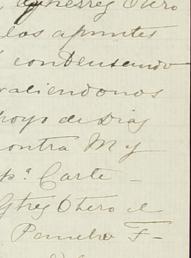 Gutierrez Otero
los apuntes
condensando
valiendonos
apoyo de Dias
contra M y
pª Carte-
Gtrez Otero el
Pancho F-